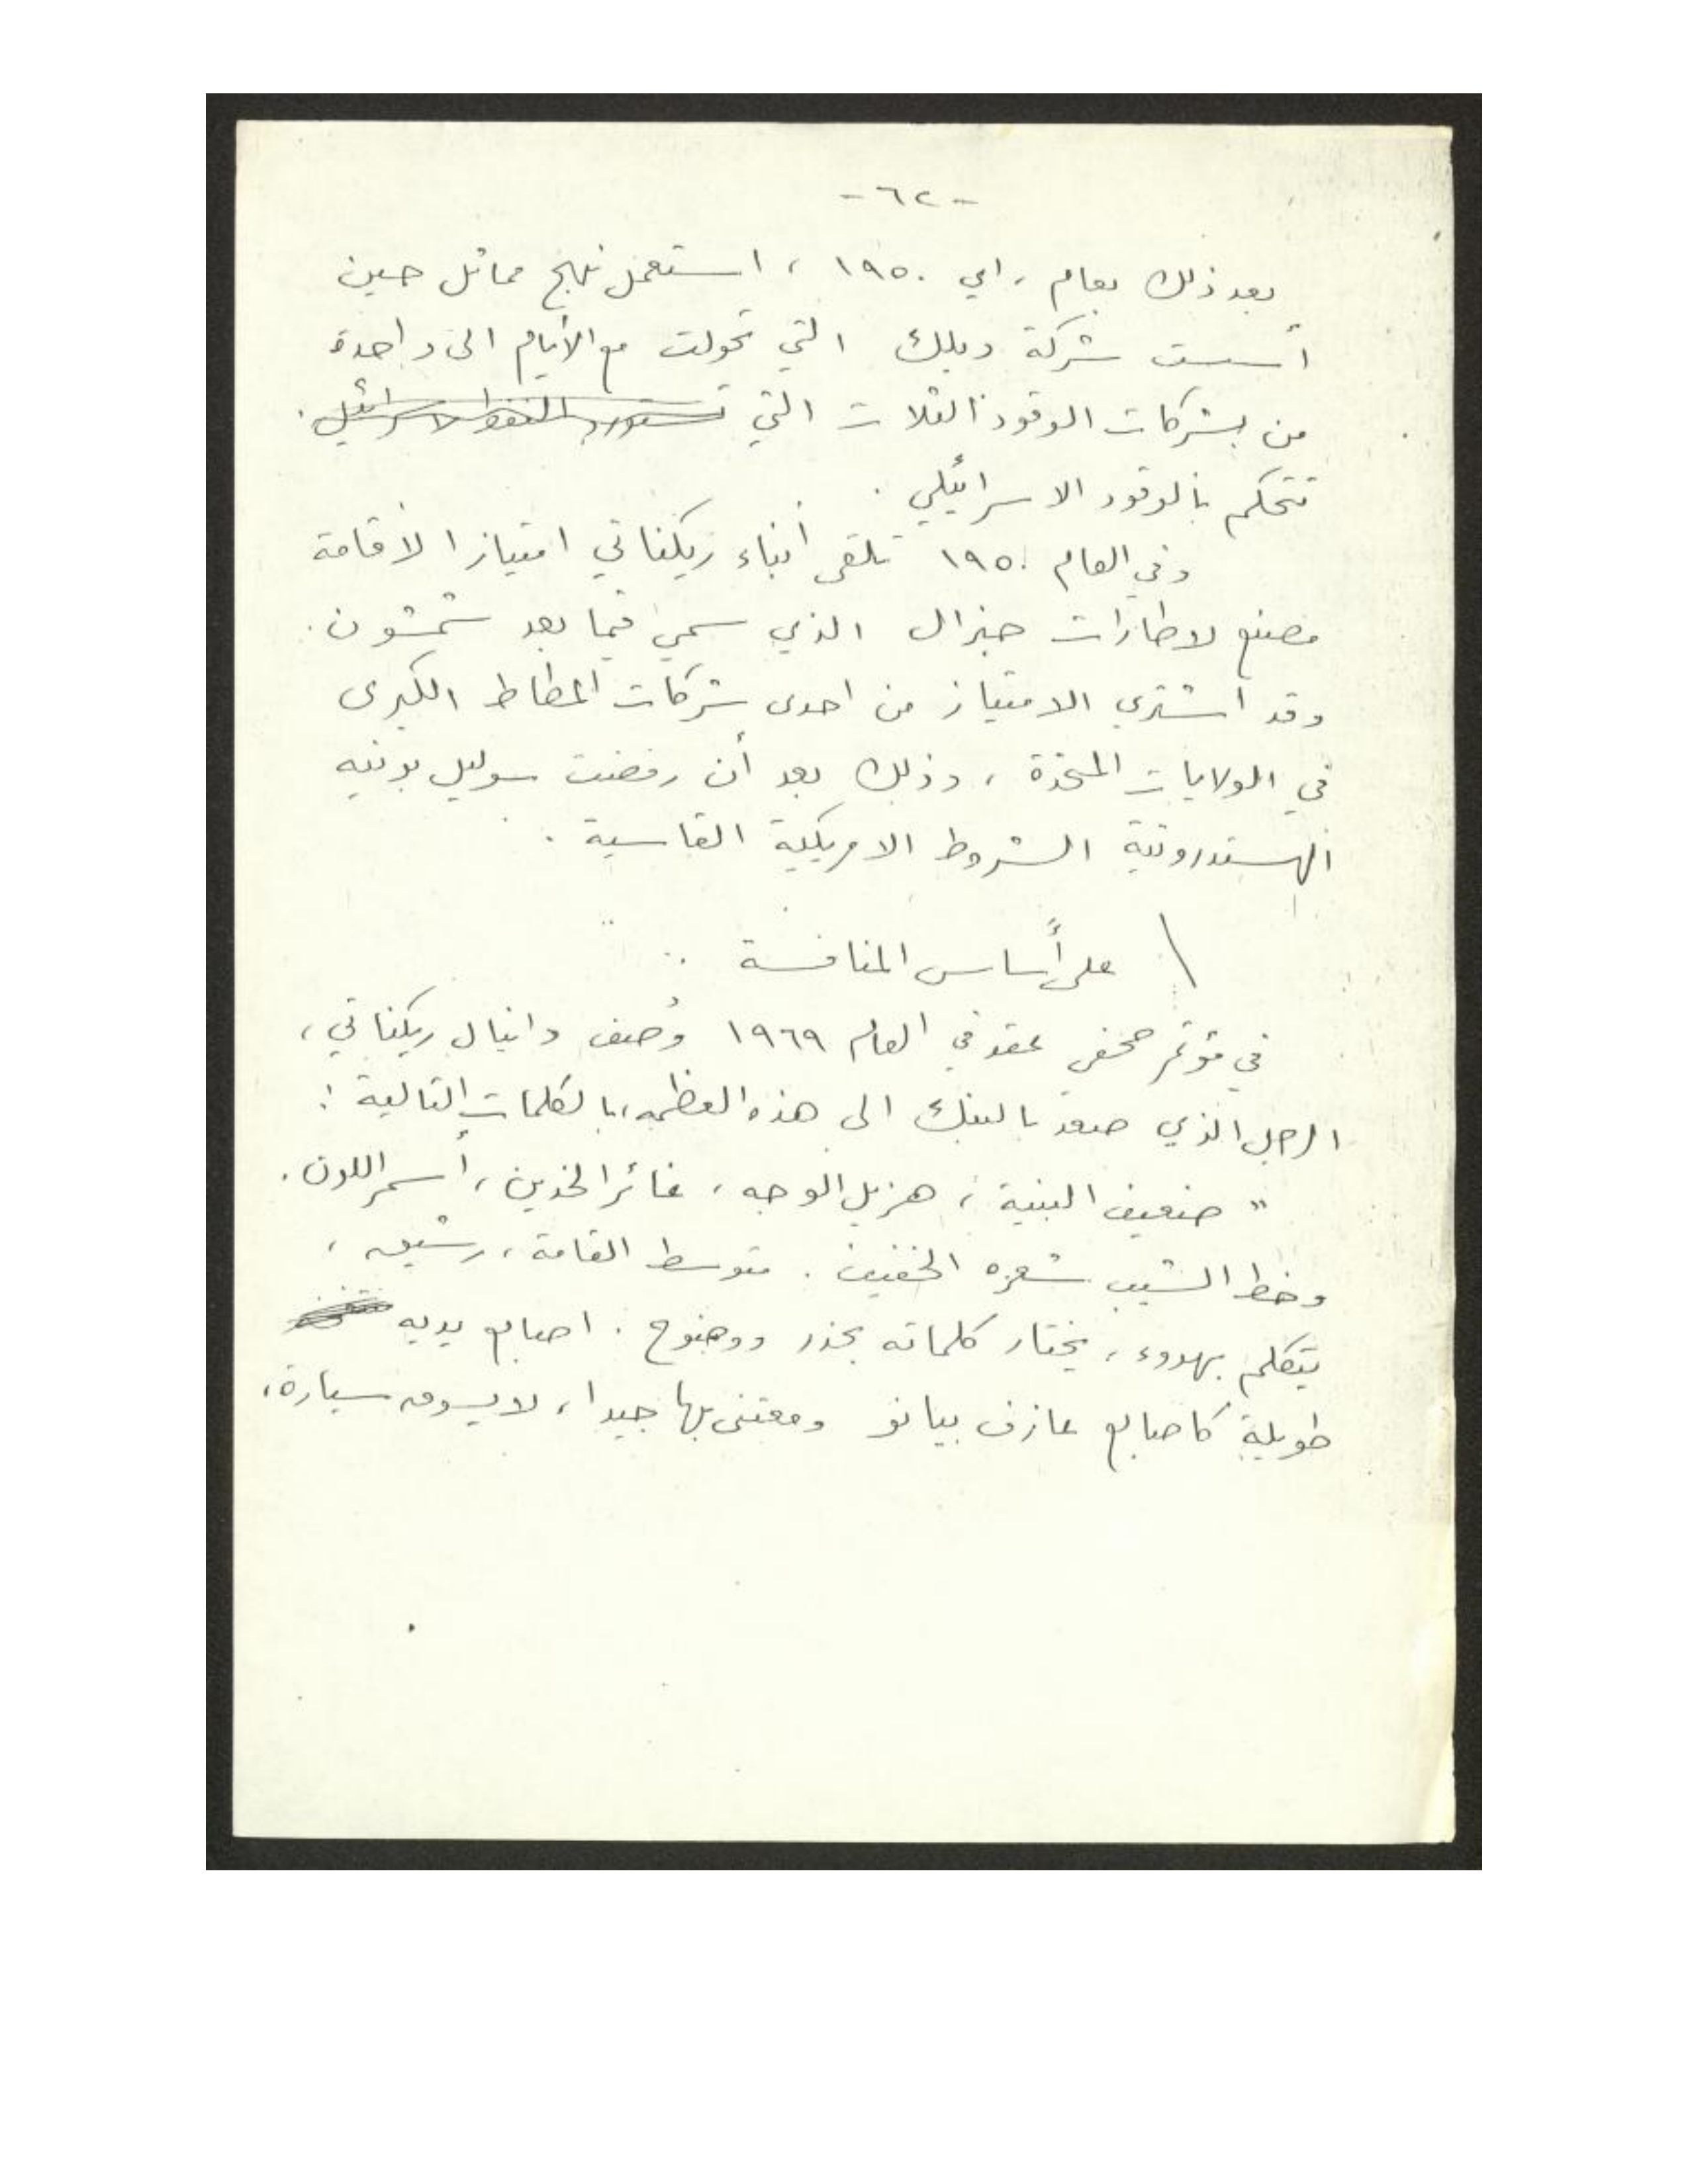 - ٦٢ -
بعد ذلك بعام ، اي ١٩٥٠ ، استعمل نهج مماثل حين
أسست شركة ديلك التي تحولت مع الأيام الى واحدة
من شركات الوقود الثلاث التي تستورد النفط الاسرائيلي .
تتحكم بالوقود الاسرائيلي .
وفي العام ١٩٥٠ تلقى أبناء ريكناتي امتيازا لاقامة
مصنع لاطارات جنرال الذي سمي فيما بعد شمشون .
وقد اشتري الامتياز من احدى شركات المطاط الكبرى
في الولايات المتحدة ، وذلك بعد أن رفضت سوليل بونيه
الهستدروتية الشروط الامريكية القاسية .
على أساس المنافسة ..
في مؤتمر صحفي عقد في العام ١٩٦٩ وُصف دانيال ريكناتي ،
الرجل الذي صعد بالبنك الى هذه العظمة ، بالكلمات التالية :
" ضعيف البنية ، هزيل الوجه ، غائر الخدين ، أسمر اللون .
وخط الشيب شعره الخفيف . متوسط القامة ، رشيق ،
يتكلم بهدوء ، يختار كلماته بحذر ووضوح . اصابع يديه
طويلة كاصابع عازف بيانو ومعتنى بها جيدا ، لا يسوق سيارة ،